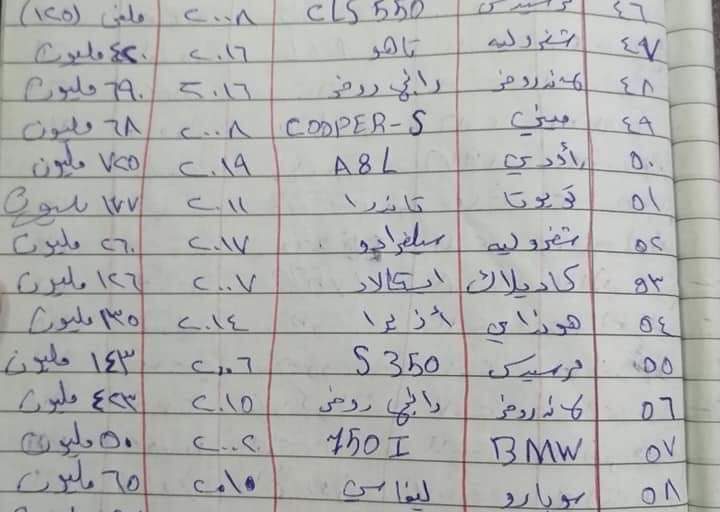 ٤٦ مرسيدس CLS 550 ٢٠٠٨ (١٢٥)
٤٧ شفروليه تاهو ٢٠١٦ مليون
٤٨ لاندروفر رانج روفر ٢٠١٦ ٦٩٠ مليون
٤٩ ميني COOPER-S ٢٠٠٨ ٦٨ مليون
٥٠ أودي A8L ٢٠١٩ ٧٢٥ مليون
٥١ تويوتا تاندرا ٢٠١١ ١٧٧ مليون
٥٢ شفروليه سلفرادو ٢٠١٧ ٢٦٠ مليون
٥٣ كاديلاك اسكالاد ٢٠٠٧ ١٢٦ مليون
٥٤ هونداي أزيرا ٢٠١٤ ١٣٥ مليون
٥٥ مرسيدس S 350 ٢٠٠٦ ١٤٣ مليون
٥٦ لاندروفر رانج روفر ٢٠١٥ ٤٢٣ مليون
٥٧ BMW 750I ٢٠٠٢ ٥٠ مليون
٥٨ سوبارو ليفاسي ٢٠١٠ ٦٥ مليون